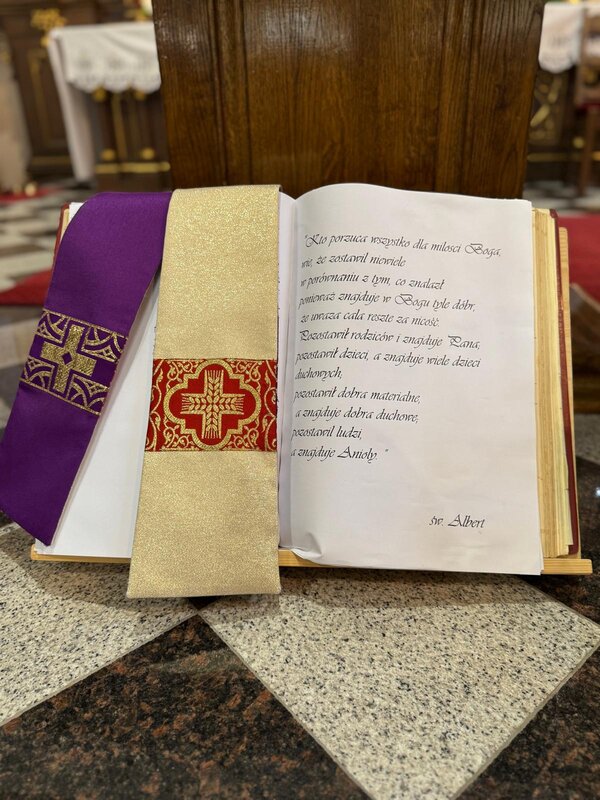 "Kto porzuca wszystko dla milosci Boga,
wie, że zostawil niewiele
w porównaniu z tym, co znalazł
ponieważ znajduje w Bogu tyle dóbr,
że uwaza cala reszte za nicość.
Pozostawił rodziców i znajduje Pana,
pozostawil dzieci, a znajduje wiele dzieci
duchowych,
pozostawił dobra materialne,
a znajduje dobra duchowe,
pozostawil ludzi,
a znajduje Anioly."
św. Albert